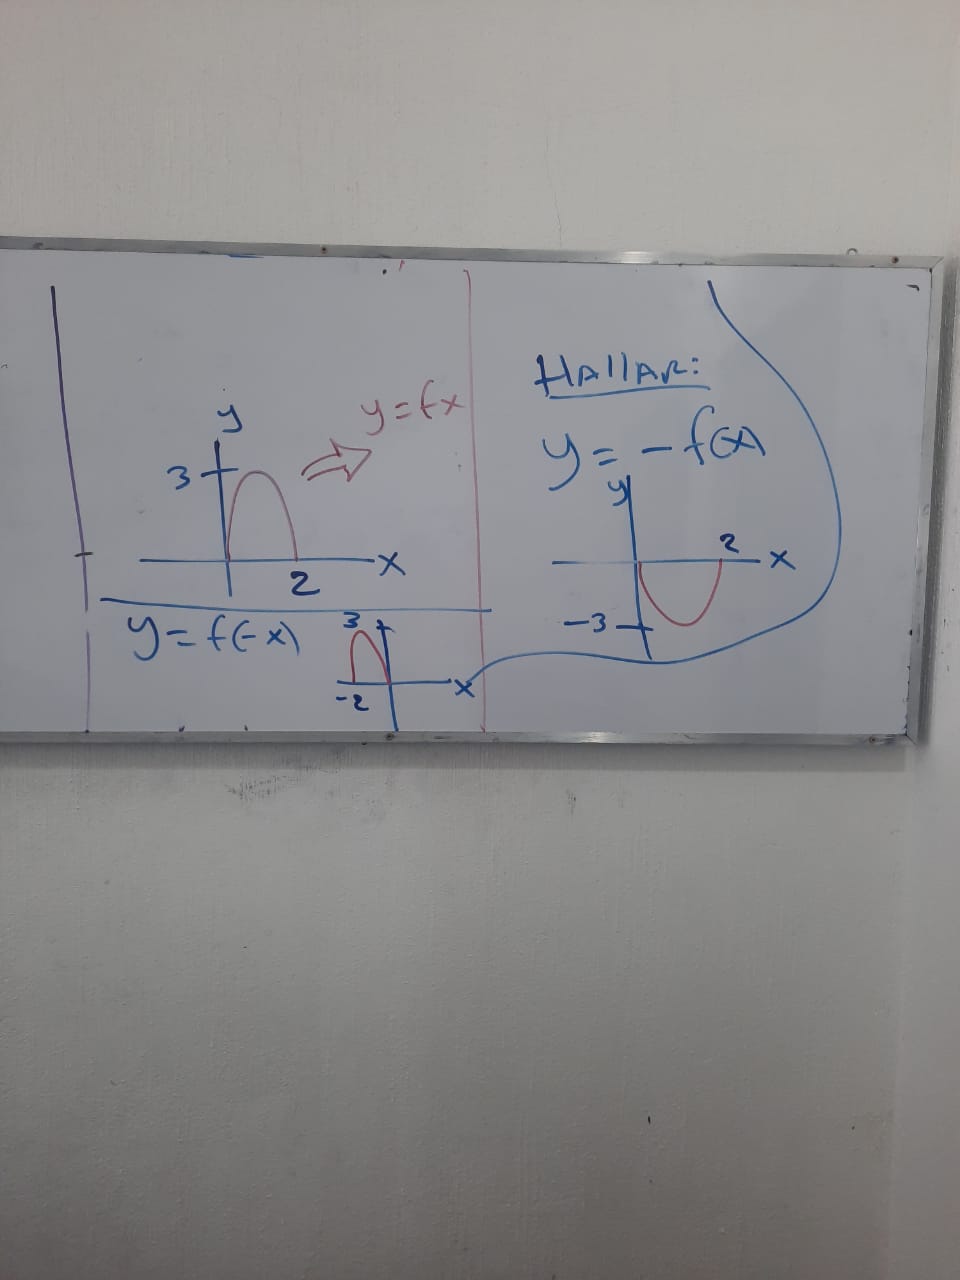 y
y=fx
3
x
2
y=f(-x)
3
-2
x
HAllAR:
y=-f(x)
y
2
x
-3